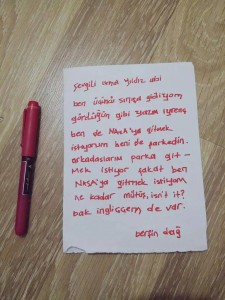 Sevgili uma yıldız abi
ben üçüncü sınıfa gidiyom
gördüğün gibi yazım iğrenç
ben de NASA'ya gitmek
istiyorum beni de farkedin.
arkadaşlarım parka git-
mek istiyor fakat ben
NASA'ya gitmek istiyom
ne kadar müthüş, isn't it?
bak ingilişçem de var.
berfin dağ